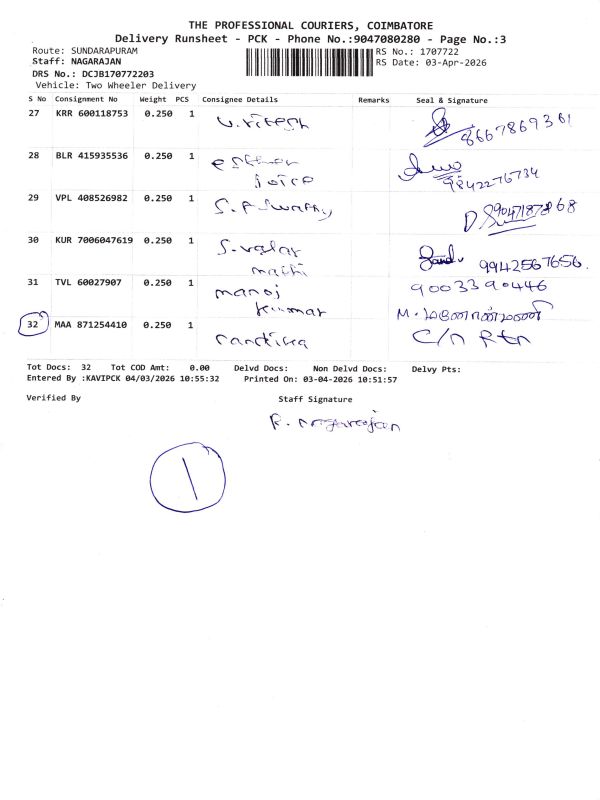 THE PROFESSIONAL COURIERS, COIMBATORE
Delivery Runsheet - PCK - Phone No.:9047080280 - Page No.:3
Route: SUNDARAPURAM
RS No.: 1707722
Staff: NAGARAJAN
RS Date: 03-Apr-2026
DRS No.: DCJB170772203
Vehicle: Two Wheeler Delivery
S No Consignment No Weight PCS Consignee Details Remarks Seal & Signature
27 KRR 600118753 0.250 1 V. Vitesh 8667869361
28 BLR 415935536 0.250 1 9842276734
29 VPL 408526982 0.250 1 S. P Swathy 9047187868
30 KUR 7006047619 0.250 1 S. Valar mathi 9942567656.
31 TVL 60027907 0.250 1 manoj kumar 9003390446
32 MAA 871254410 0.250 1 C/n Rtn
Tot Docs: 32 Tot COD Amt: 0.00 Delvd Docs: Non Delvd Docs: Delvy Pts:
Entered By :KAVIPCK 04/03/2026 10:55:32 Printed On: 03-04-2026 10:51:57
Verified By Staff Signature
R. Nagarajan
1